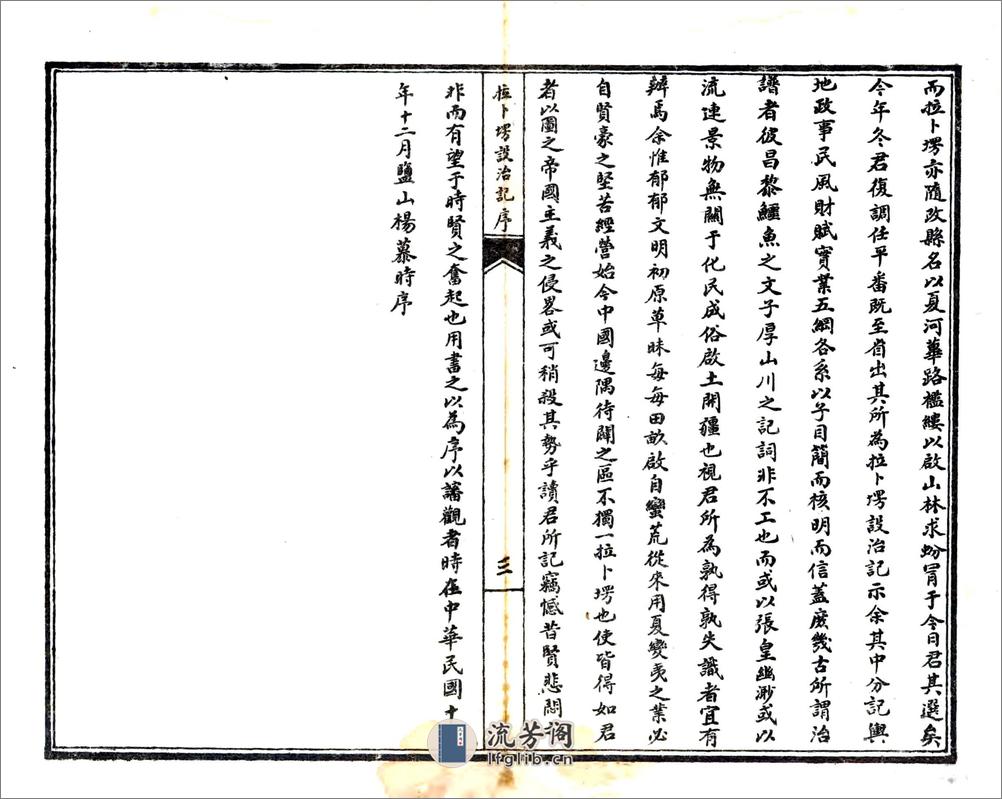 而拉卜塄亦隨改縣名以夏河蓽路襤縷以啟山林求蚡冒于今日君其選矣
今年冬君復調任平番既至省出其所為拉卜塄設治記示余其中分記輿
地政事民風財賦實業五綱各系以子目簡而核明而信蓋庶幾古所謂治
譜者彼昌黎鱷魚之文子厚山川之記詞非不工也而或以張皇幽渺或以
流連景物無關于化民成俗啟土開疆也視君所為孰得孰失識者宜有
辨焉余惟郁郁文明初原草昧每每田畝啟自蠻荒從來用夏變夷之業必
自賢豪之堅苦經營始今中國邊隅待闢之區不獨一拉卜塄也使皆得如君
者以圖之帝國主義之侵畧或可稍殺其勢乎讀君所記竊憾昔賢悲閔
拉卜塄設治記序
三
非而有望于時賢之奮起也用書之以為序以諗觀者時在中華民國十
年十二月鹽山楊慕時序
流芳阁
lfglib.cn